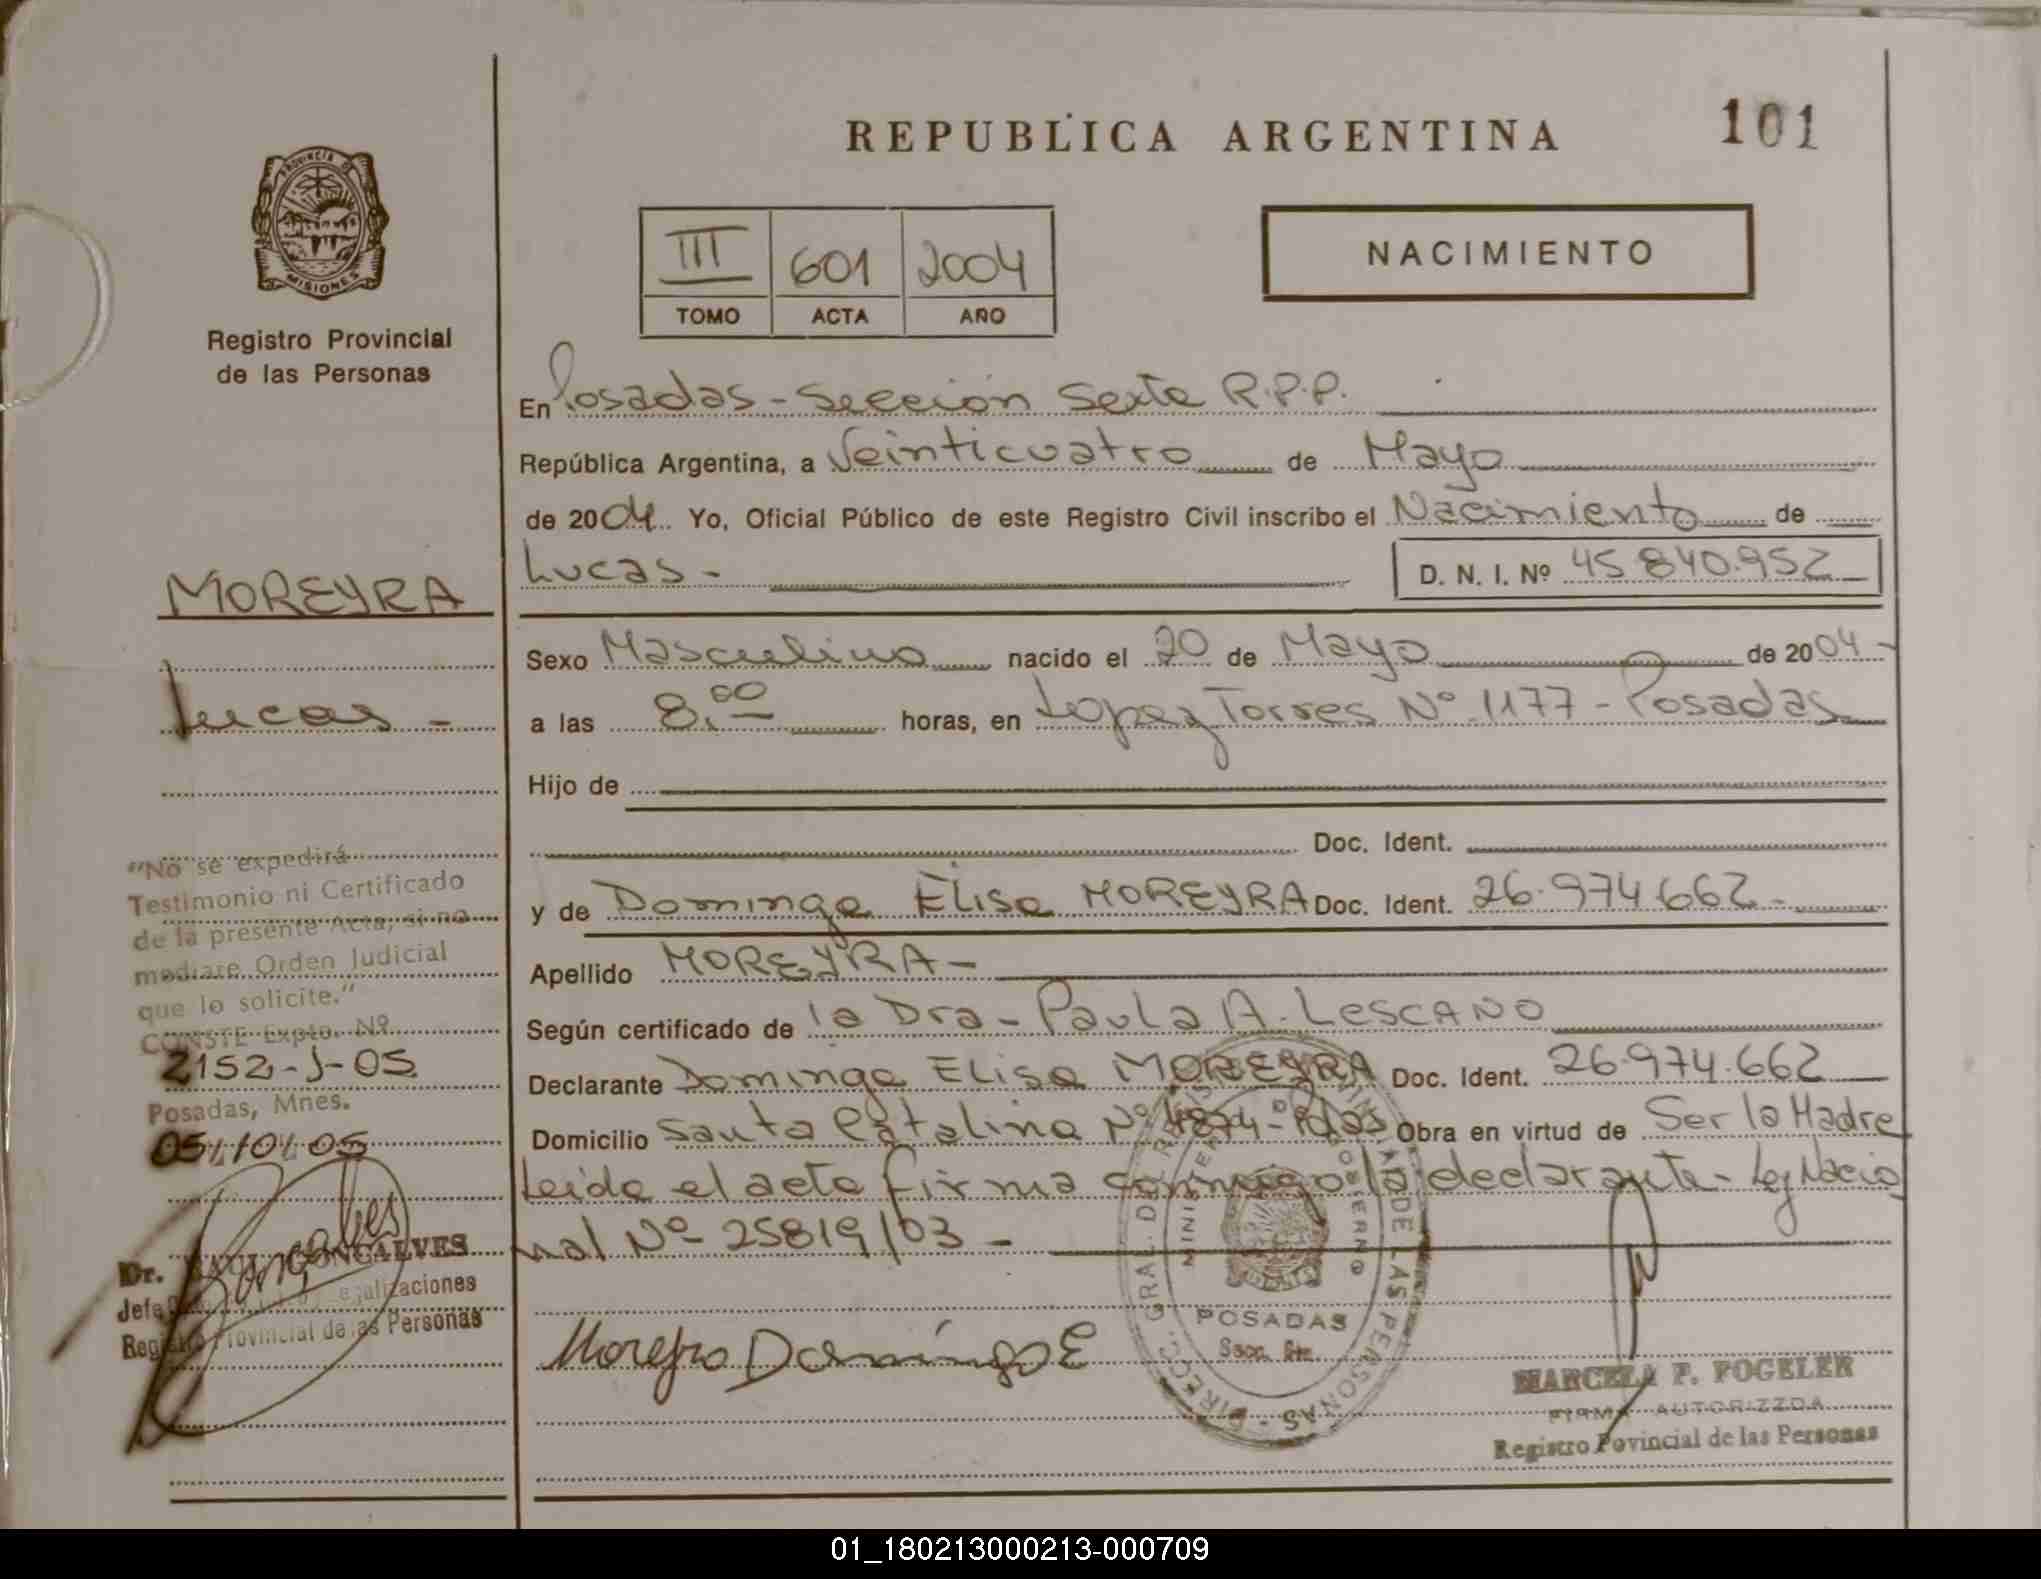 REPUBLICA ARGENTINA
101
PROVINCIA DE
MISIONES
Registro Provincial
de las Personas
III 601 2004
TOMO ACTA AÑO
NACIMIENTO
En Posadas - Sección Sexta R.P.P.
República Argentina, a Veinticuatro de Mayo
de 2004 Yo, Oficial Público de este Registro Civil inscribo el Nacimiento de
Lucas -
D. N. I. Nº 45.840.952
MOREYRA
Lucas -
Sexo Masculino nacido el 20 de Mayo de 2004 -
a las 8,00 horas, en Lopez Torres Nº 1177 - Posadas
Hijo de
Doc. Ident.
y de Dominga Elisa MOREYRA Doc. Ident. 26.974.662 -
Apellido MOREYRA -
Según certificado de la Dra - Paula A. LESCANO
Declarante Dominga Elisa MOREYRA Doc. Ident. 26.974.662
Domicilio Santa Catalina Nº 4874 - Pdas Obra en virtud de Ser la Madre
Leida el acta firma conmigo la declarante - Ley Nacio
nal Nº 25819/03 -
"No se expedirá
Testimonio ni Certificado
de la presente Acta, si no
mediare Orden Judicial
que lo solicite."
CONSTE Expte. Nº
2152-J-05
Posadas, Mnes.
05/10/05
Dr. GONCALVES
Jefe Legalizaciones
Registro Provincial de las Personas
Moreyra Dominga E
DIRECC. GRAL. DEL REGISTRO DE LAS PERSONAS
MINISTERIO DE GOBIERNO
POSADAS
Secc. 6ta.
MARCELA F. FOGELER
FIRMA AUTORIZZDA
Registro Povincial de las Personas
01_180213000213-000709